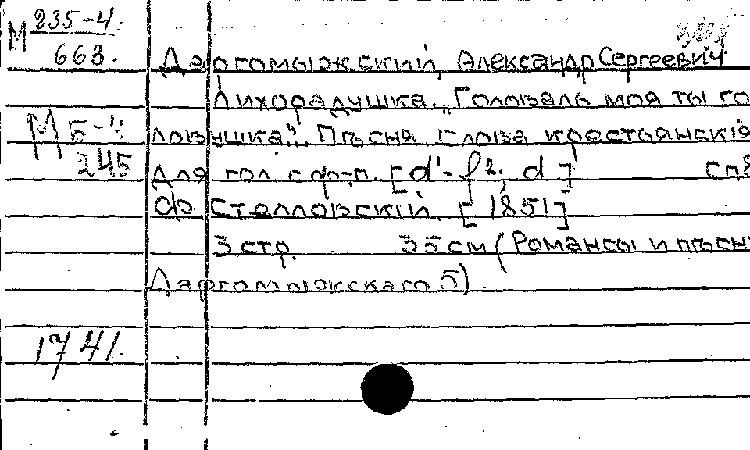 М 235-4.
663.
Даргомыжский, Александр Сергеевич
Лихорадушка. „Головаль моя ты го
ловушка". Пѣсня слова крестьянскія
М Б-4
245
для гол. с ф-п. [d'-f²; d] СПб
Ф. Стелловскій. [1851]
3 стр. 35 см (Романсы и пѣсни
Даргомыжскаго 5)
1741.